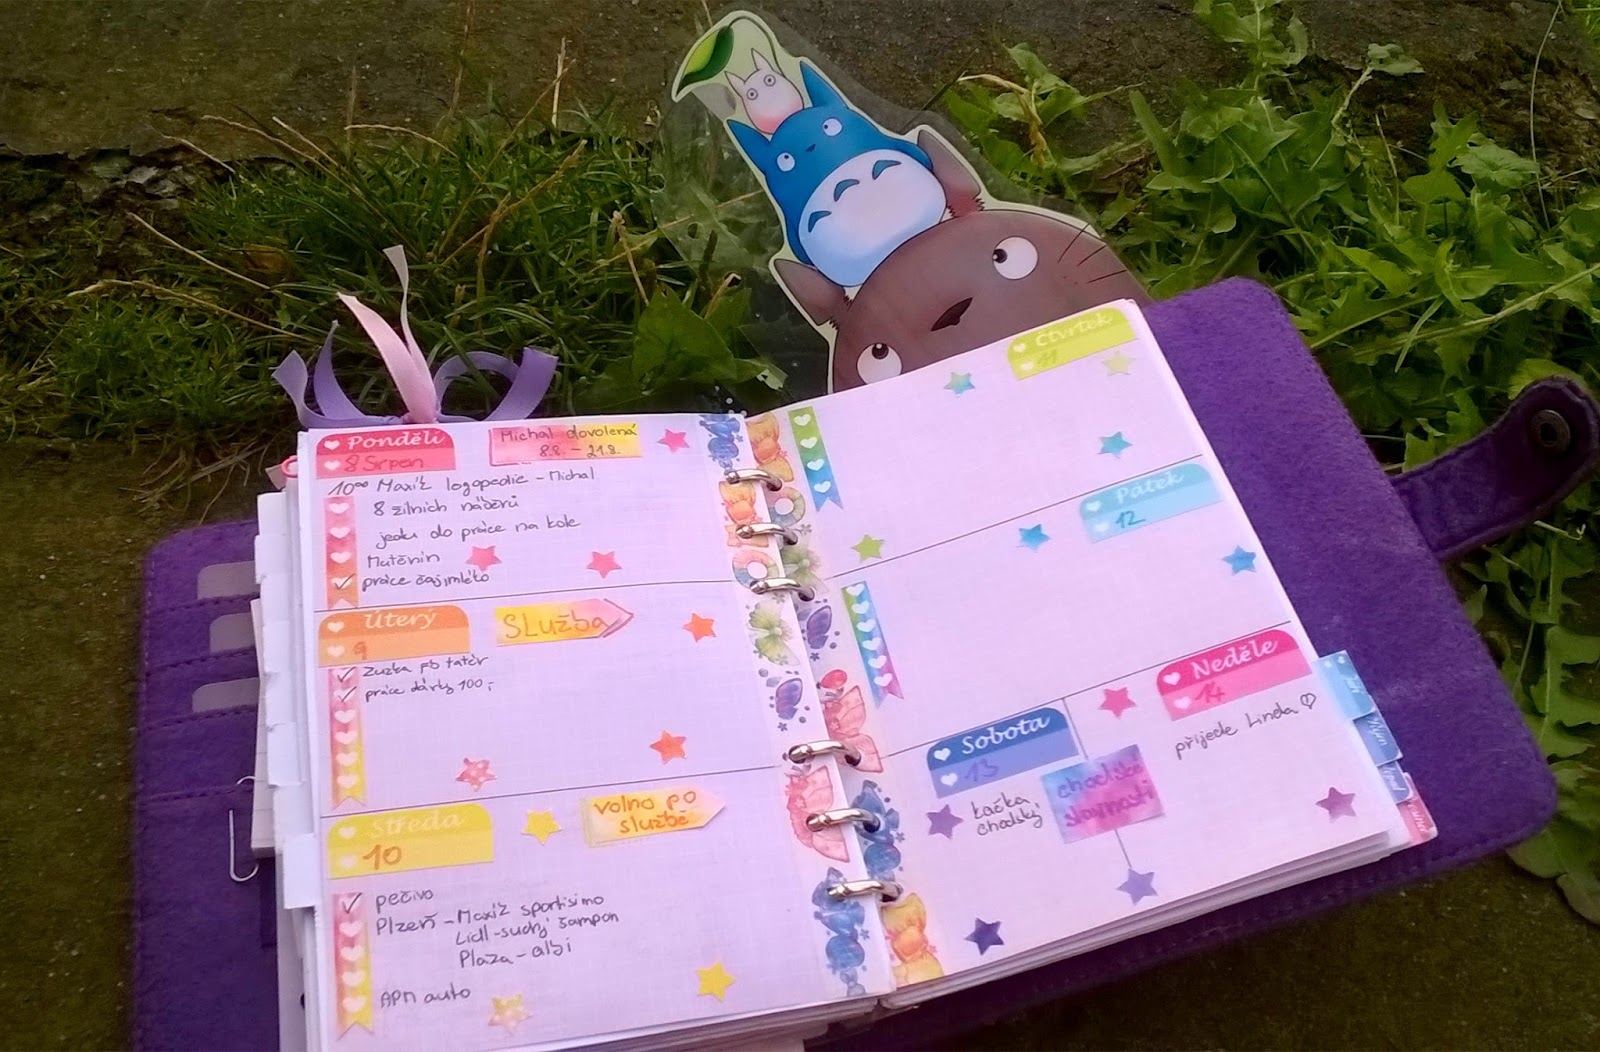 Pondělí
8 Srpen
Michal dovolená
8.8. - 21.8.
10⁰⁰ Maxíč logopedie - Michal
8 žilních náběrů
jedu do práce na kole
Mutěnín
práce čaj, mléto
Úterý
9
SLUŽBA
Zuzka pb tatér
práce dárky 100,-
Středa
10
volno po
službě
pečivo
Plzeň - Maxíč sportisimo
Lidl - suchý šampon
Plaza - albi
APM auto
Čtvrtek
11
Pátek
12
Sobota
13
kačka
chodský
chodské
slavnosti
Neděle
14
přijede Linda